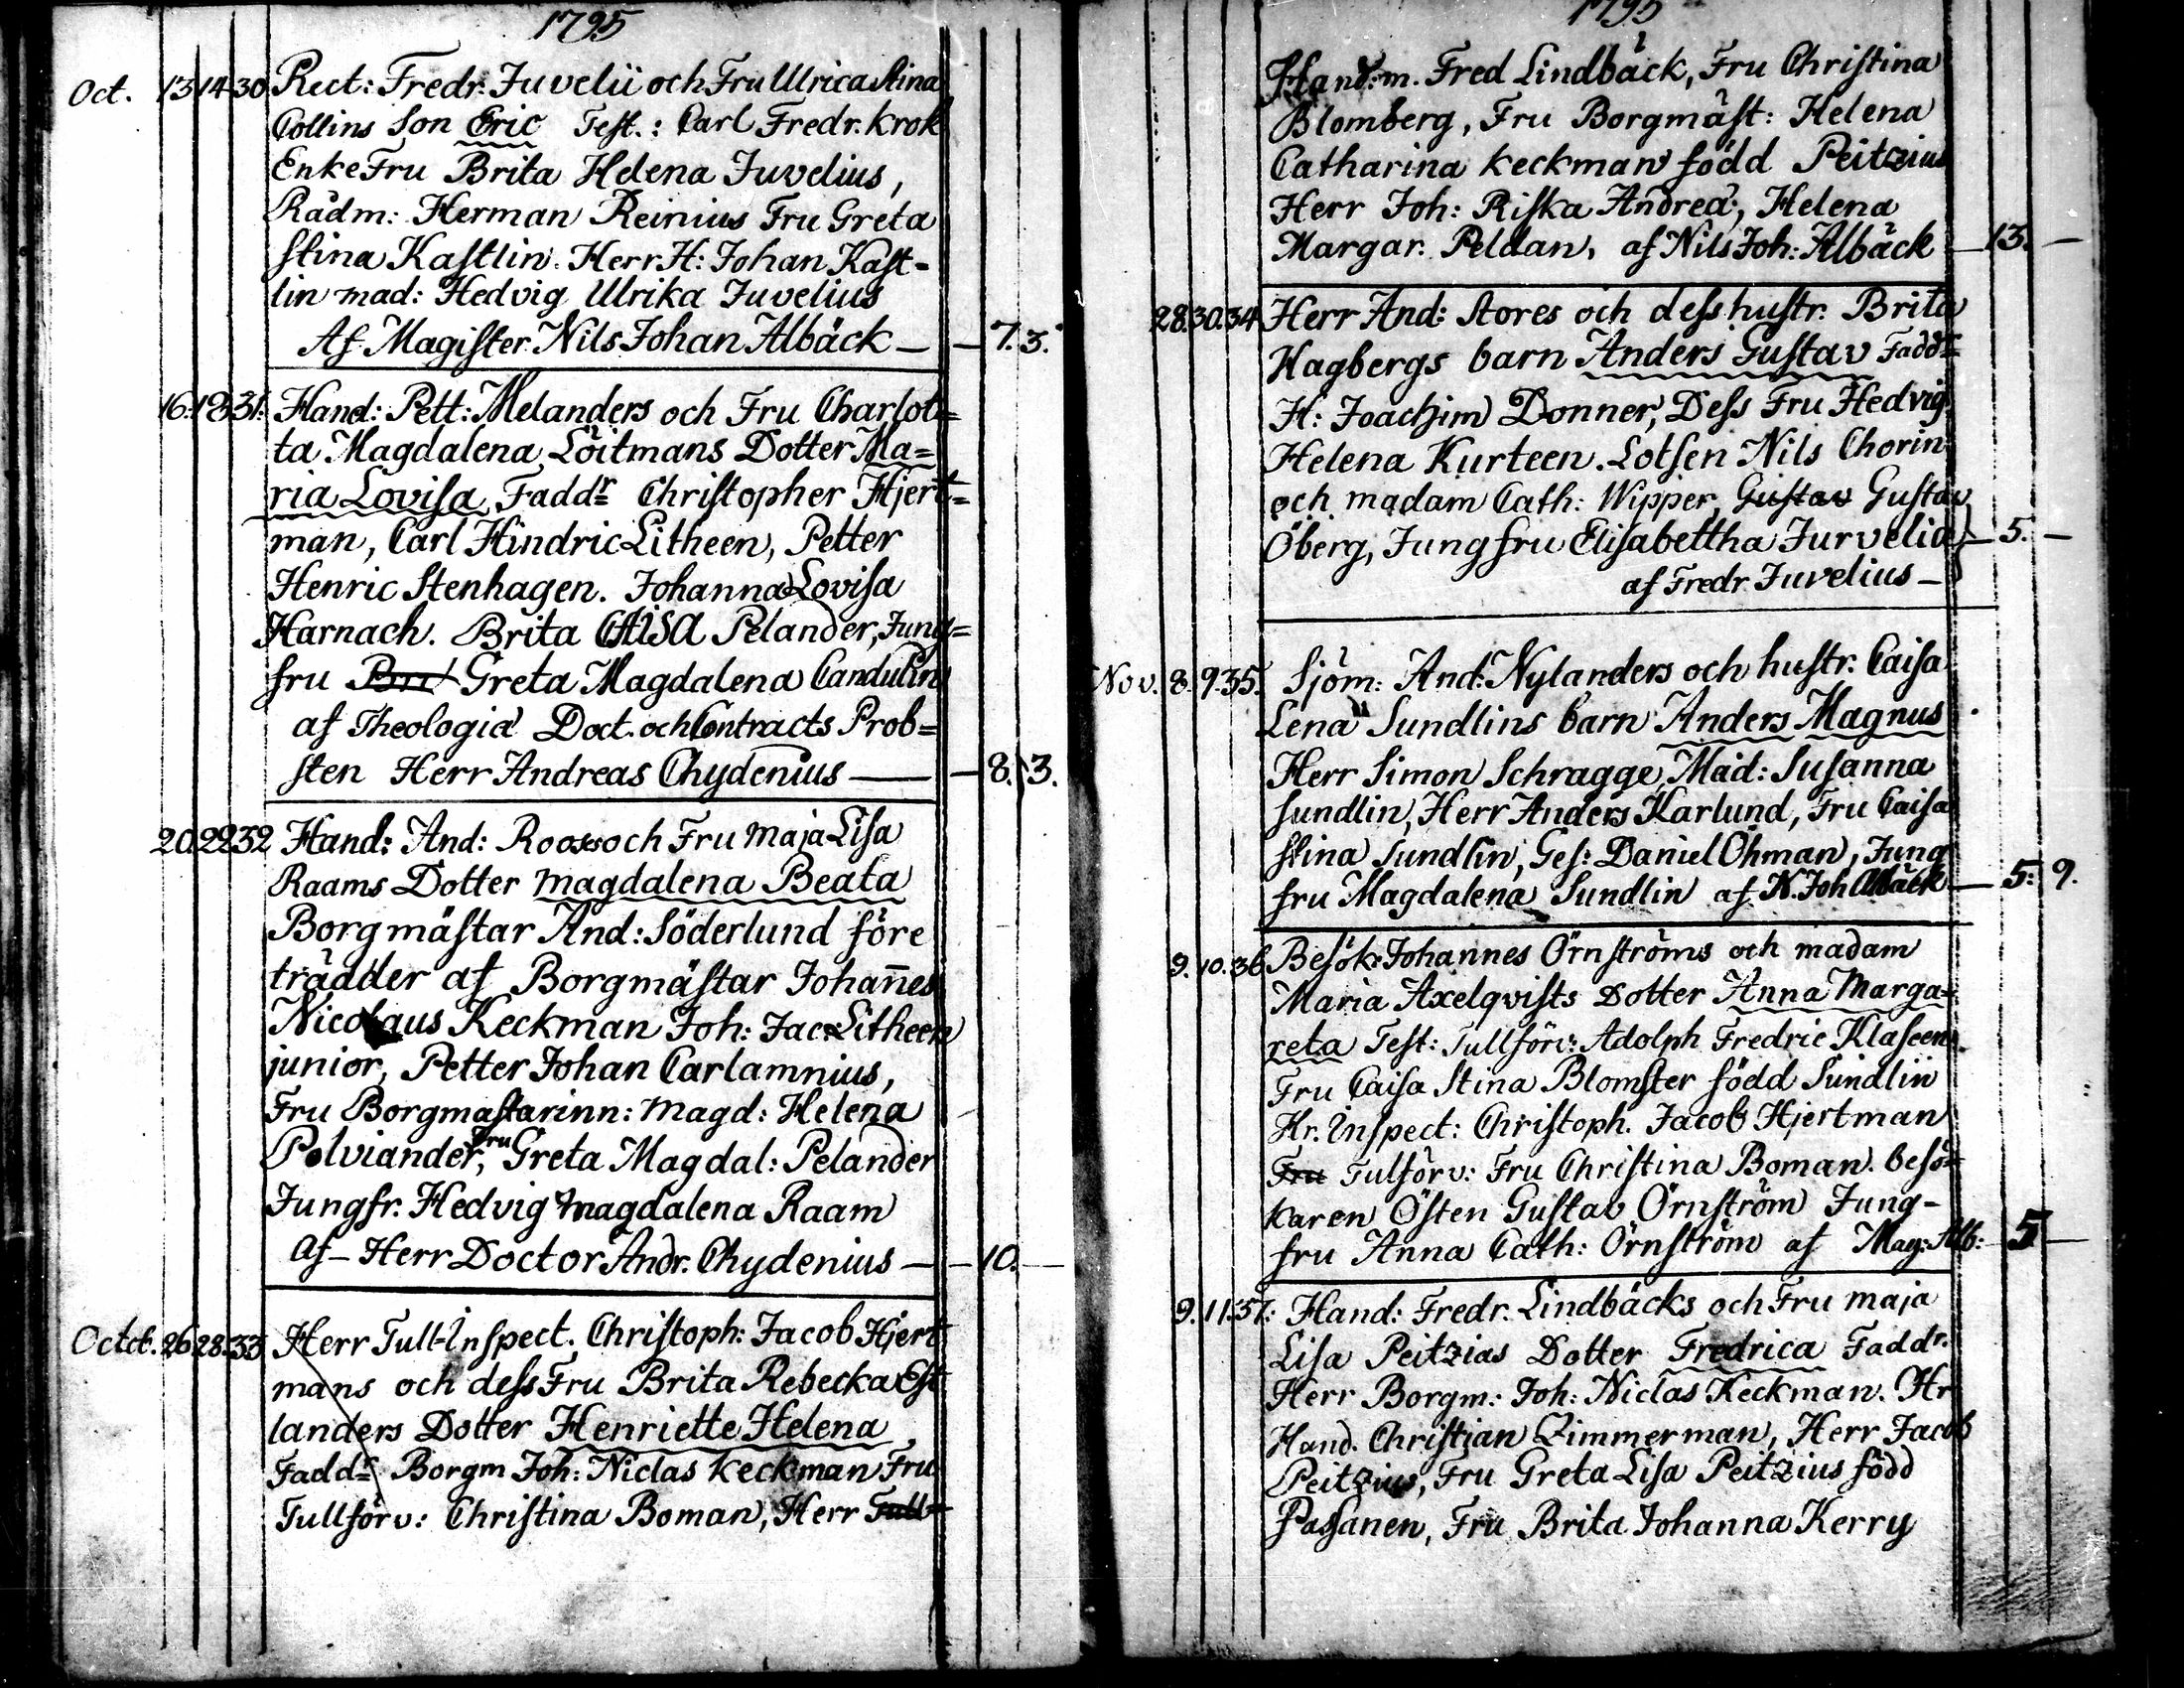 1795
Oct. 13 14 30 Rect: Fredr: Juvelii och Fru Ulrica Stina
Collins Son Eric Test.: Carl Fredr. Krok
EnkeFru Brita Helena Juvelius,
Rådm: Herman Reinius Fru Greta
Stina Kastlin. Herr H: Johan Kast-
lin mad: Hedvig Ulrika Juvelius
Af Magister Nils Johan Albäck — — 7. 3.
16. 18 31. Hand: Pett: Melanders och Fru Charlot=
ta Magdalena Löitmans Dotter Ma=
ria Lovisa Faddr Christopher Hjert=
man, Carl Hindric Litheen, Petter
Henric Stenhagen. Johanna Lovisa
Harnach. Brita CAISA Pelander, Jung=
fru Greta Magdalena Candulin
af Theologiæ Doct. och Contracts Prob=
sten Herr Andreas Chydenius — — 8. 3.
20. 22 32 Hand: And: Rooss och Fru Maja Lisa
Raams Dotter Magdalena Beata
Borgmästar And: Söderlund före
trädder af Borgmästar Johan̄es
Nicolaus Keckman Joh: Jac. Litheen
junior, Petter Johan Carlamnius,
Fru Borgmästarinn: Magd: Helena
Polviander, Fru Greta Magdal: Pelander
Jungfr. Hedvig Magdalena Raam
Af – Herr Doctor Andr. Chydenius — — 10. —
Octob. 26. 28. 33 Herr Tull-Inspect. Christoph: Jacob Hjert
mans och dess Fru Brita Rebecka Est
landers Dotter Henriette Helena
Faddr Borgm Joh: Niclas Keckman Fru
Tullförv: Christina Boman, Herr Tull-
1795
Hand:m. Fred Lindbäck, Fru Christina
Blomberg, Fru Borgmäst: Helena
Catharina Keckman född Peitzius
Herr Joh: Riska Andreæ, Helena
Margar. Peldan, af Nils Joh: Albäck — 13. —
28. 30. 34 Herr And: Stores och dess hustr. Brita
Hagbergs barn Anders Gustav Faddr=
H: Joachim Donner, Dess Fru Hedvig
Helena Kurteen. Lotsen Nils Chorin
och madam Cath: Wipper, Gustav Gustav
Öberg, Jungfru Elisabettha Jurvelia — 5. —
af Fredr Juvelius —
Nov. 8. 9. 35. Sjöm: And: Nylanders och hustr. Caisa
Lena Sundlins barn Anders Magnus
Herr Simon Schragge, Mad: Susanna
Sundlin, Herr Anders Karlund, Fru Caisa
Stina Sundlin, Ges: Daniel Öhman, Jung
fru Magdalena Sundlin af N. Joh Albäck — 5: 9.
9. 10. 36 Besök. Johannes Örnströms och madam
Maria Axelqvists Dotter Anna Marga=
reta Test: Tullförv: Adolph Fredric Klaseen
Fru Caisa Stina Blomster född Sundlin
Hr. Inspect: Christoph. Jacob Hjertman
Fru Tulförv: Fru Christina Boman. besö=
karen Östen Gustav Örnström Jung-
fru Anna Cath: Örnström af Mag: Alb: — 5 —
9. 11. 37: Hand: Fredr. Lindbäcks och Fru Maja
Lisa Peitzias Dotter Fredrica Faddr.
Herr Borgm: Joh: Niclas Keckman. Hr
Hand. Christian Zimmerman, Herr Jacob
Peitzius, Fru Greta Lisa Peitzius född
Passanen, Fru Brita Johanna Kerry